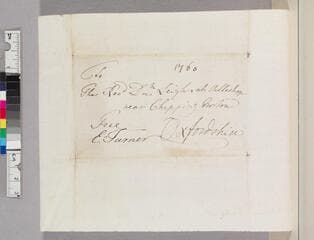 1760
To
The Revd Dr Leigh at Adlestrop
near Chipping Norton
Free Oxfordshire
E. Turner